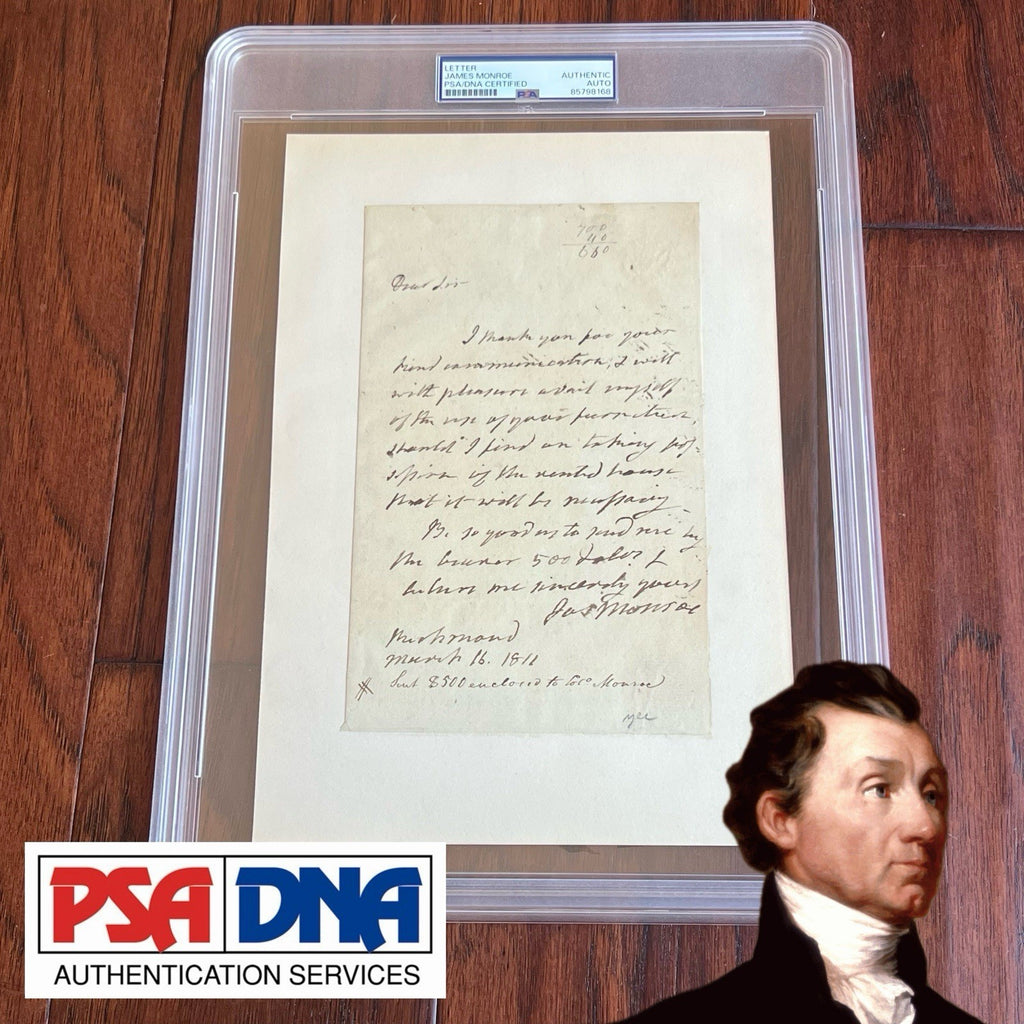 LETTER
JAMES MONROE
PSA/DNA CERTIFIED
AUTHENTIC
AUTO
85798168
PSA
700
40
660
Dear Sir
I thank you for your
kind communication, I will
with pleasure avail myself
of the use of your furniture,
should I find on taking pos-
session of the rented house
that it will be necessary
Be so good as to send me by
the bearer 500 dolrs. &
believe me sincerely yours
Jas Monroe
Richmond
March 16. 1811
Sent $500 enclosed to Colo Monroe
PSA DNA
AUTHENTICATION SERVICES